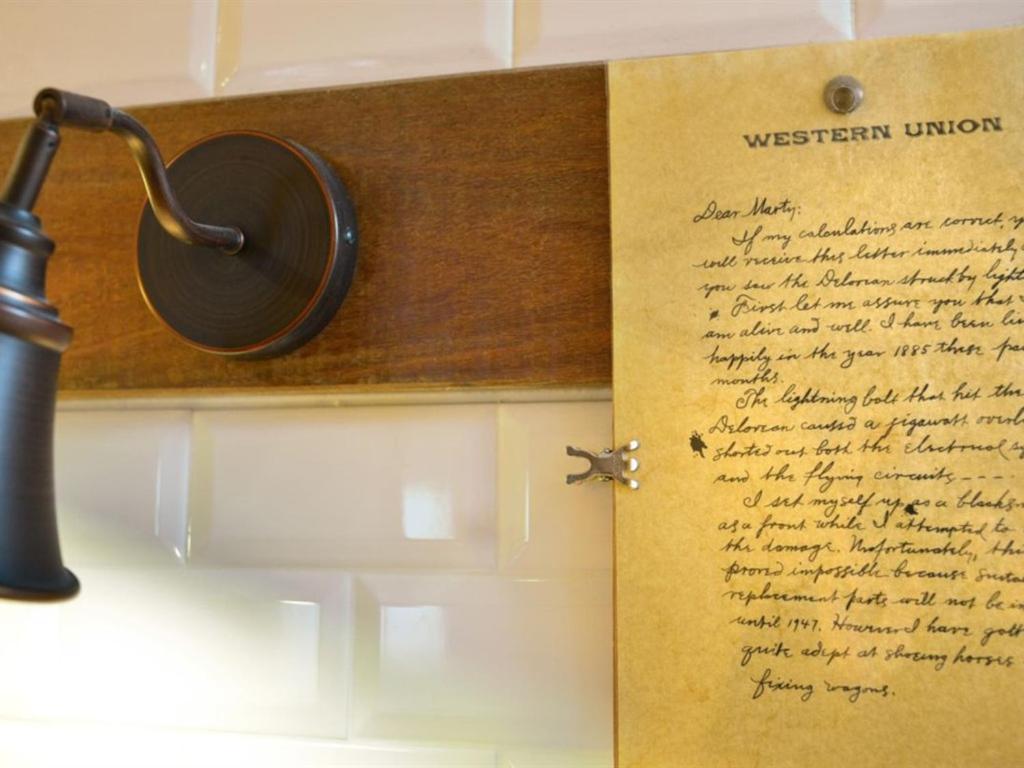 WESTERN UNION
Dear Marty:
If my calculations are correct, y
will receive this letter immediately
you saw the Delorean struck by light
First let me assure you that
am alive and well. I have been li
happily in the year 1885 these pa
months.
The lightning bolt that hit the
Delorean caused a jigawatt overl
shorted out both the electrical sy
and the flying circuits ----
I set myself up as a blacks
as a front while I attempted to
the damage. Unfortunately, thi
proved impossible because suita
replacement parts will not be in
until 1947. However I have gott
quite adept at shoeing horses
fixing wagons.